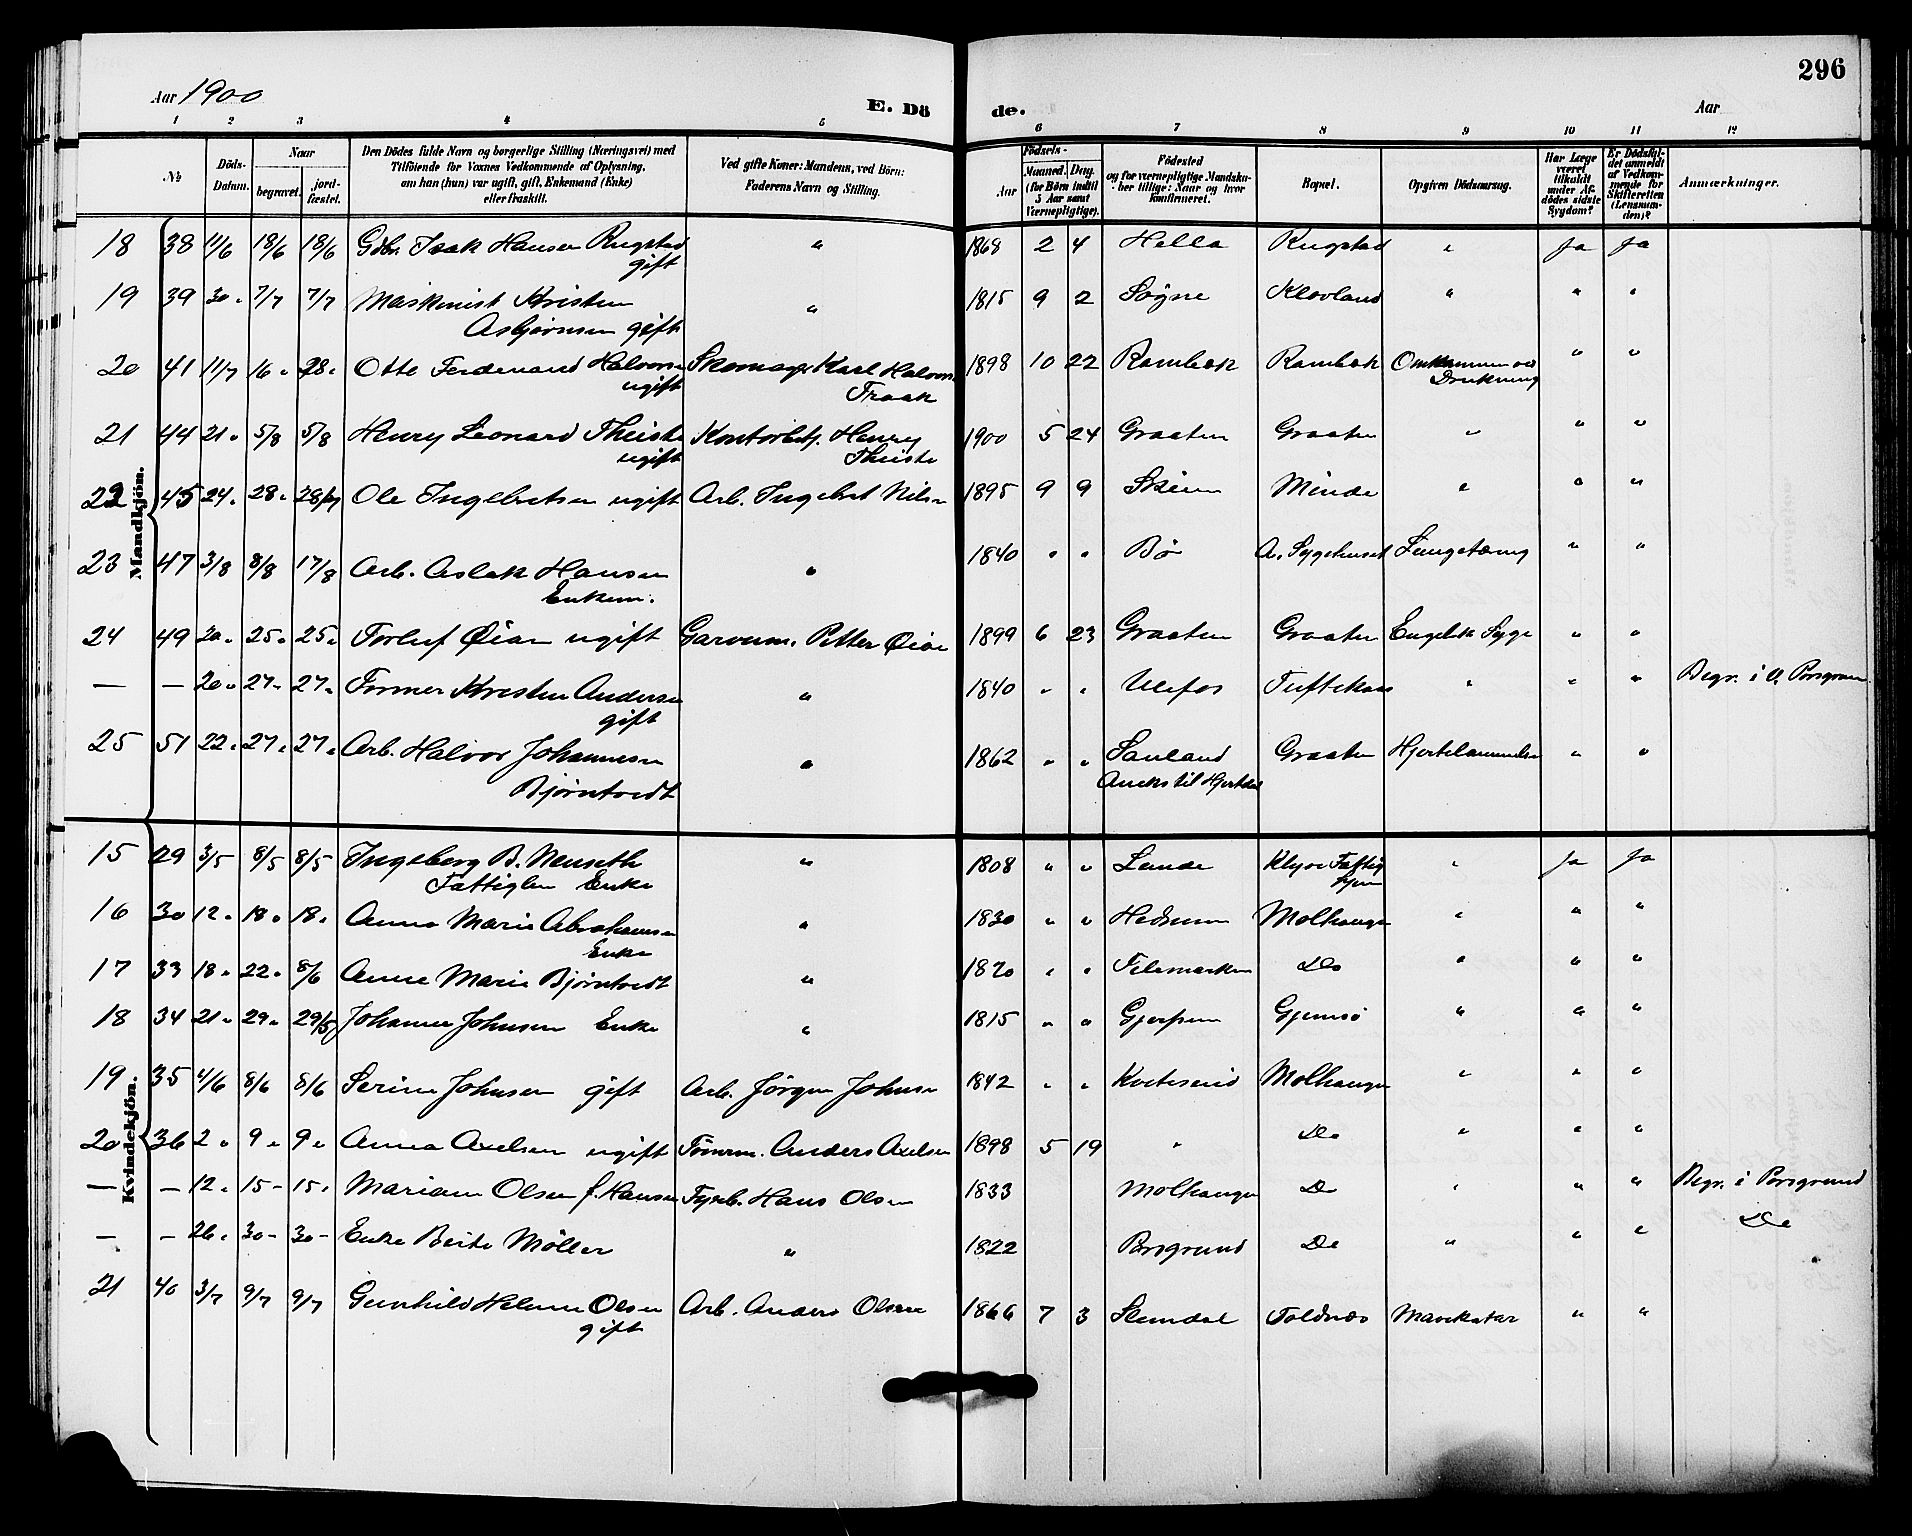 296
Aar 1900
E. Dö de.
Aar
1 2 3 4 5 6 7 8 9 10 11 12
No
Döds-Datum.
Naar
begravet. jordfæstet.
Den Dödes fulde Navn og borgerlige Stilling (Næringsvei) med
Tilföiende for Voxnes Vedkommende af Oplysning,
om han (hun) var ugift, gift, Enkemand (Enke)
eller fraskilt.
Ved gifte Koner: Mandens, ved Börn:
Faderens Navn og Stilling.
Födsels-
Aar Maaned. Dag.
(for Börn indtil
5 Aar samt
Værnepligtige).
Födested
og for værnepligtige Mandskaber tillige: Naar og hvor
konfirmeret.
Bopæl.
Opgiven Dödsaarsag.
Har Læge
været
tilkaldt
under Afdödes sidste
Sygdom?
Er Dödsfaldet anmeldt
af Vedkommende for
Skifteretten
(Lensmanden)?
Anmærkninger.
Mandkjön.
18 38 11/6 18/6 18/6 Gbr. Isak Hansen Rugstad " 1868 2 4 Hella Rugstad " Ja Ja
gift
19 39 30. 7/7 7/7 Maskinist Kristen " 1815 9 2 Søgne Klovland " " "
Asbjørnsen gift
20 41 11/7 16. 28. Otto Ferdinand Halvorsn Skomager Karl Halvors. 1898 10 22 Rambæk Rambæk Omkommen ved " "
ugift Traak Drukning
21 44 21. 5/8 5/8 Henry Leonard Theiste Kontorbetj. Henry 1900 5 24 Graaten Graaten " " "
ugift Theiste
22 45 24. 28. 28/7 Ole Ingebretsen ugift Arb. Ingebret Nilsen 1895 9 9 Skien Minde " " "
23 47 3/8 8/8 17/8 Arb. Aslak Hansen " 1840 " " Bø A. Sygehuset Lungetæring " "
Enkem.
24 49 20. 25. 25. Torluf Øian ugift Garverm. Petter Øian 1899 6 23 Graaten Graaten Engelsk Syge " "
— — 20. 27. 27. Former Kristen Andersen " 1840 " " Ulefos Tuftekas " " " Begr. i V. Porsgrund
gift
25 51 22. 27. 27. Arb. Halvor Johannesen " 1862 " " Sauland Graaten Hjertelammelse " "
Bjørntvedt Aneks til Hjertdal
Kvindekjön.
15 29 3/5 8/5 8/5 Ingeborg B. Nenseth " 1808 " " Lunde Klyve Fattig " Ja Ja
Fattiglem Enke hjem
16 30 12. 18. 18. Anna Marie Abrahamsen " 1830 " " Hedrum Molhaugen " " "
Enke
17 33 18. 22. 8/6 Anne Marie Bjørntvedt " 1820 " " Telemarken Do " " "
18 34 21. 29. 29/5 Johanne Johnsen Enke " 1815 " " Gjerpen Gjemsø " " "
19 35 4/6 8/6 8/6 Serine Johnsen gift Arb. Jørgen Johnsen 1842 " " Kviteseid Molhaugen " " "
20 36 2. 9. 9. Anna Axelsen ugift Tømrm. Anders Axelsen 1898 5 19 " Do " " "
— — 12. 15- 15. Mariane Olsen f. Hansen Fyrb. Hans Olsen 1833 Molhaugen Do " " " Begr. i Porsgrund
— — 26. 30- 30- Enke Berte Møller " 1822 Porsgrund Do " " " Do
21 40 3/7 9/7 9/7 Gunhild Helene Olsen Arb. Anders Olsen 1866 7 3 Slemdal Foldnæs Mavekatar " "
gift